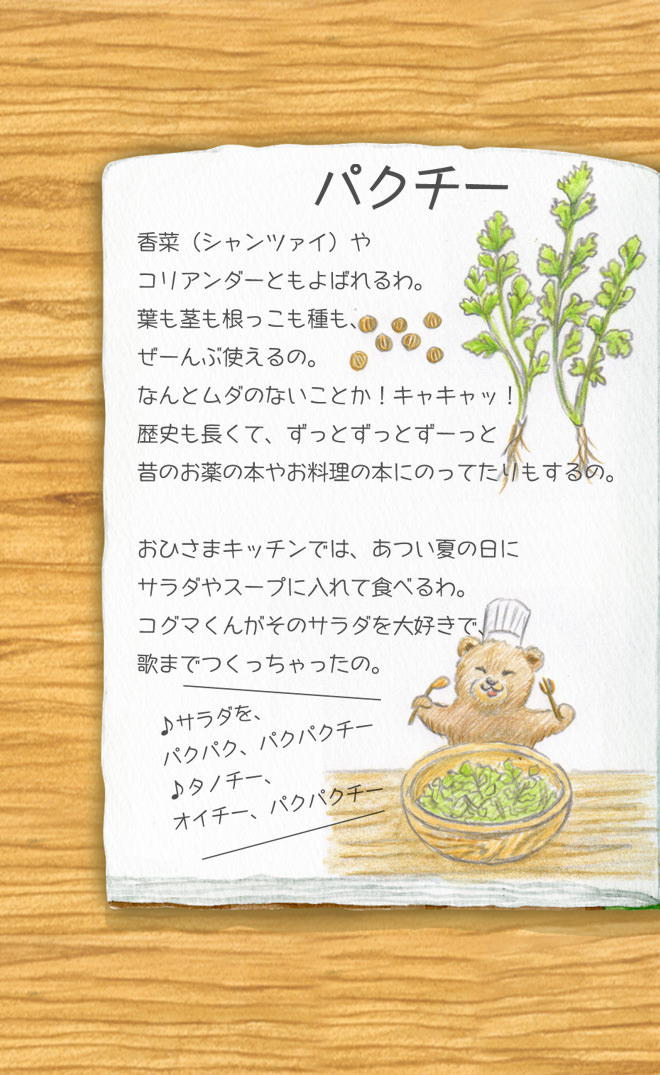 パクチー
香菜（シャンツァイ）や
コリアンダーともよばれるわ。
葉も茎も根っこも種も、
ぜーんぶ使えるの。
なんとムダのないことか！キャキャッ！
歴史も長くて、ずっとずっとずーっと
昔のお薬の本やお料理の本にのってたりもするの。
おひさまキッチンでは、あつい夏の日に
サラダやスープに入れて食べるわ。
コグマくんがそのサラダを大好きで、
歌までつくっちゃったの。
♪サラダを、
パクパク、パクパクチー
♪タノチー、
オイチー、パクパクチー